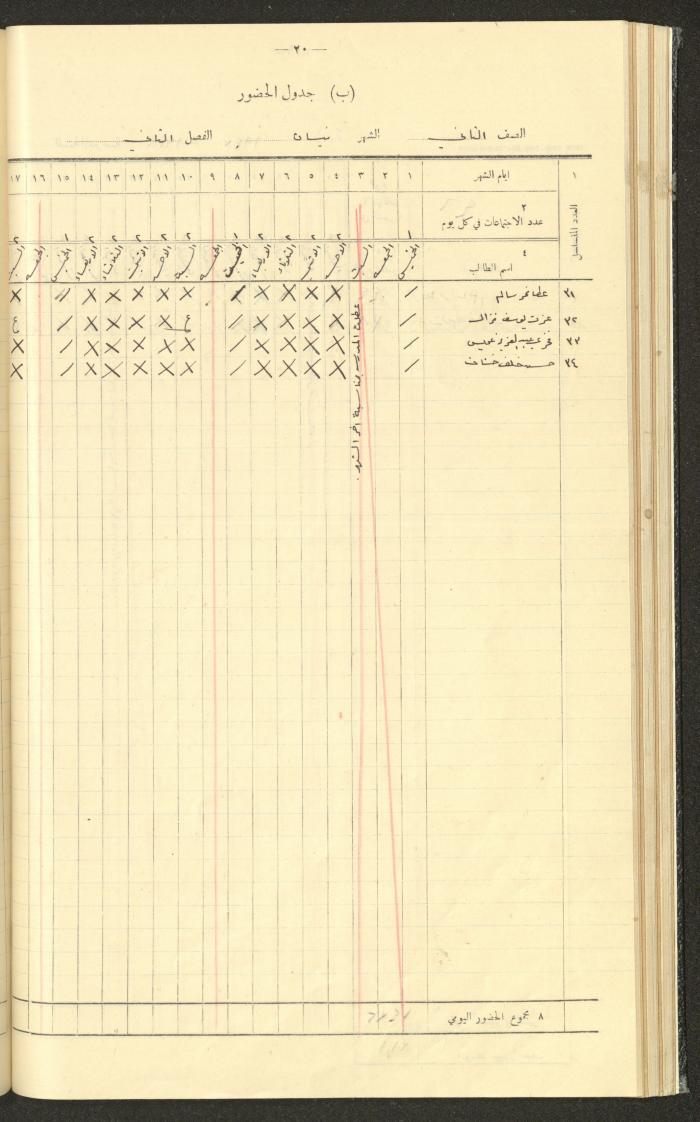 — ٢٠ —
(ب) جدول الحضور
الصف الثاني الشهر نيسان الفصل الثاني
١ ايام الشهر ١ ٢ ٣ ٤ ٥ ٦ ٧ ٨ ٩ ١٠ ١١ ١٢ ١٣ ١٤ ١٥ ١٦ ١٧
العدد المتسلسل
٢
عدد الاجتماعات في كل يوم ١ ٢ ٢ ٢ ٢ ١ ٢ ٢ ٢ ٢ ٢ ١ ٢
٤
اسم الطالب الخميس الجمعة السبت الاحد الاثنين الثلاثاء الاربعاء الخميس الجمعة السبت الاحد الاثنين الثلاثاء الاربعاء الخميس الجمعة السبت
٣١ عطا نمر سالم / X X X X / X X X X X / X
٣٢ عزت يوسف نزال / X X X X / ع X X X X / ع
٣٣ عبد العزيز / X X X X / X X X X X / X
٣٤ حسن خلف / X X X X / X X X X X / X
عطلت المدرسة بمناسبة اخر الشهر.
٨ مجموع الحضور اليومي